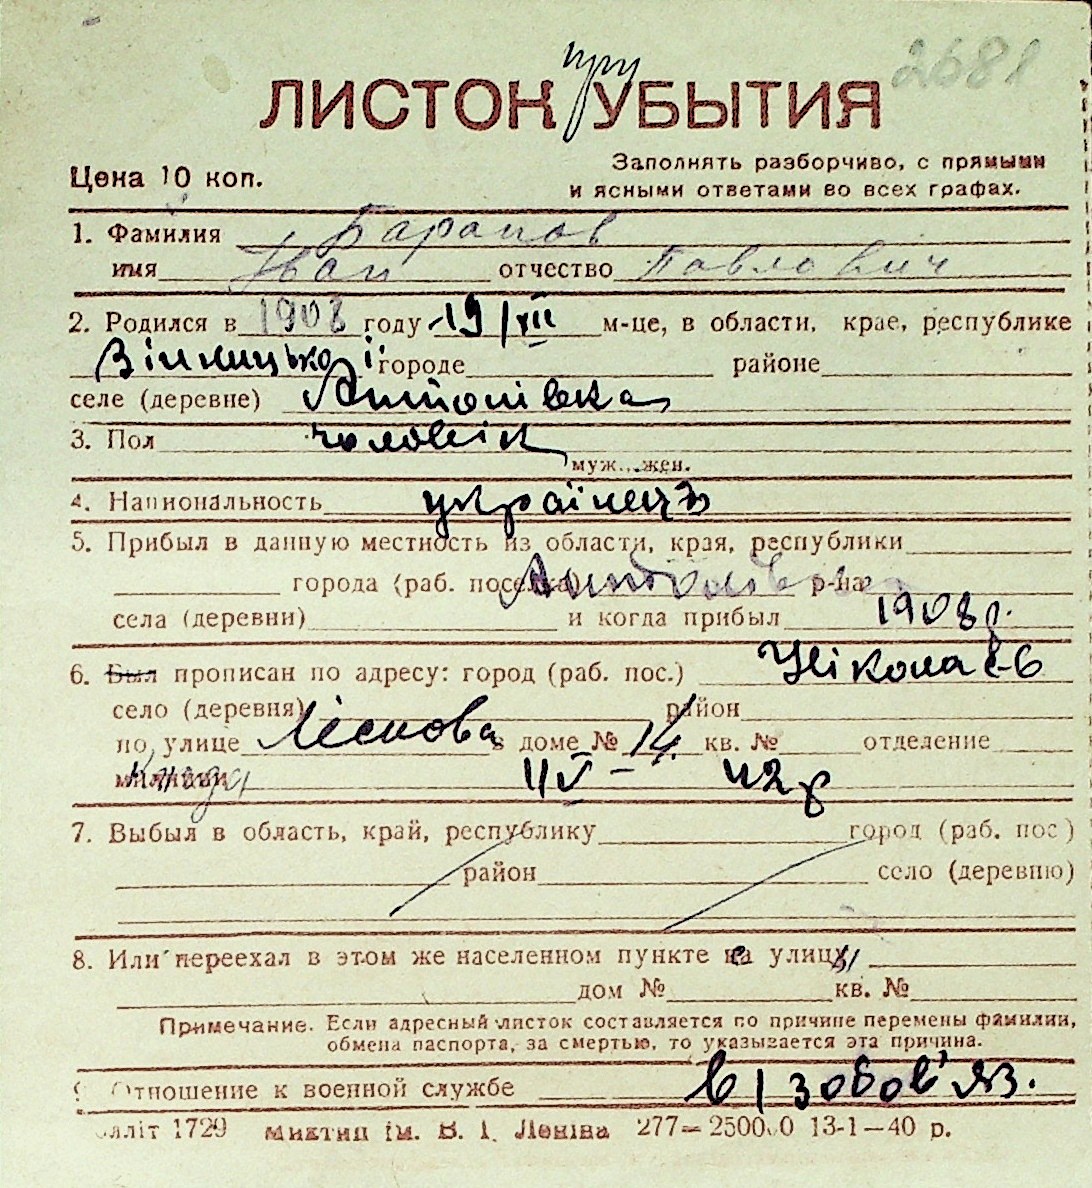 2681
ЛИСТОК при УБЫТИЯ
Цена 10 коп.
Заполнять разборчиво, с прямыми
и ясными ответами во всех графах.
1. Фамилия Баранов
имя Иван отчество Павлович
2. Родился в 1908 году 19/VII м-це, в области, крае, республике
Вінницької городе районе
селе (деревне) Антонівка
3. Пол чоловік
муж...жен.
4. Национальность українець
5. Прибыл в данную местность из области, края, республики
города (раб. поселка) р-на
села (деревни) и когда прибыл 1908 р.
6. Был прописан по адресу: город (раб. пос.)
село (деревня) район
по улице Лєскова в доме № 14 кв. № отделение
милиции 4/V - 42 р
7. Выбыл в область, край, республику город (раб. пос)
район село (деревню)
8. Или переехал в этом же населенном пункте с улицы
дом № кв. №
Примечание. Если адресный листок составляется по причине перемены фамилии,
обмена паспорта, за смертью, то указывается эта причина.
9. Отношение к военной службе в/зобов'яз.
1729 ім. В. І. Леніна 277— 13-1—40 р.